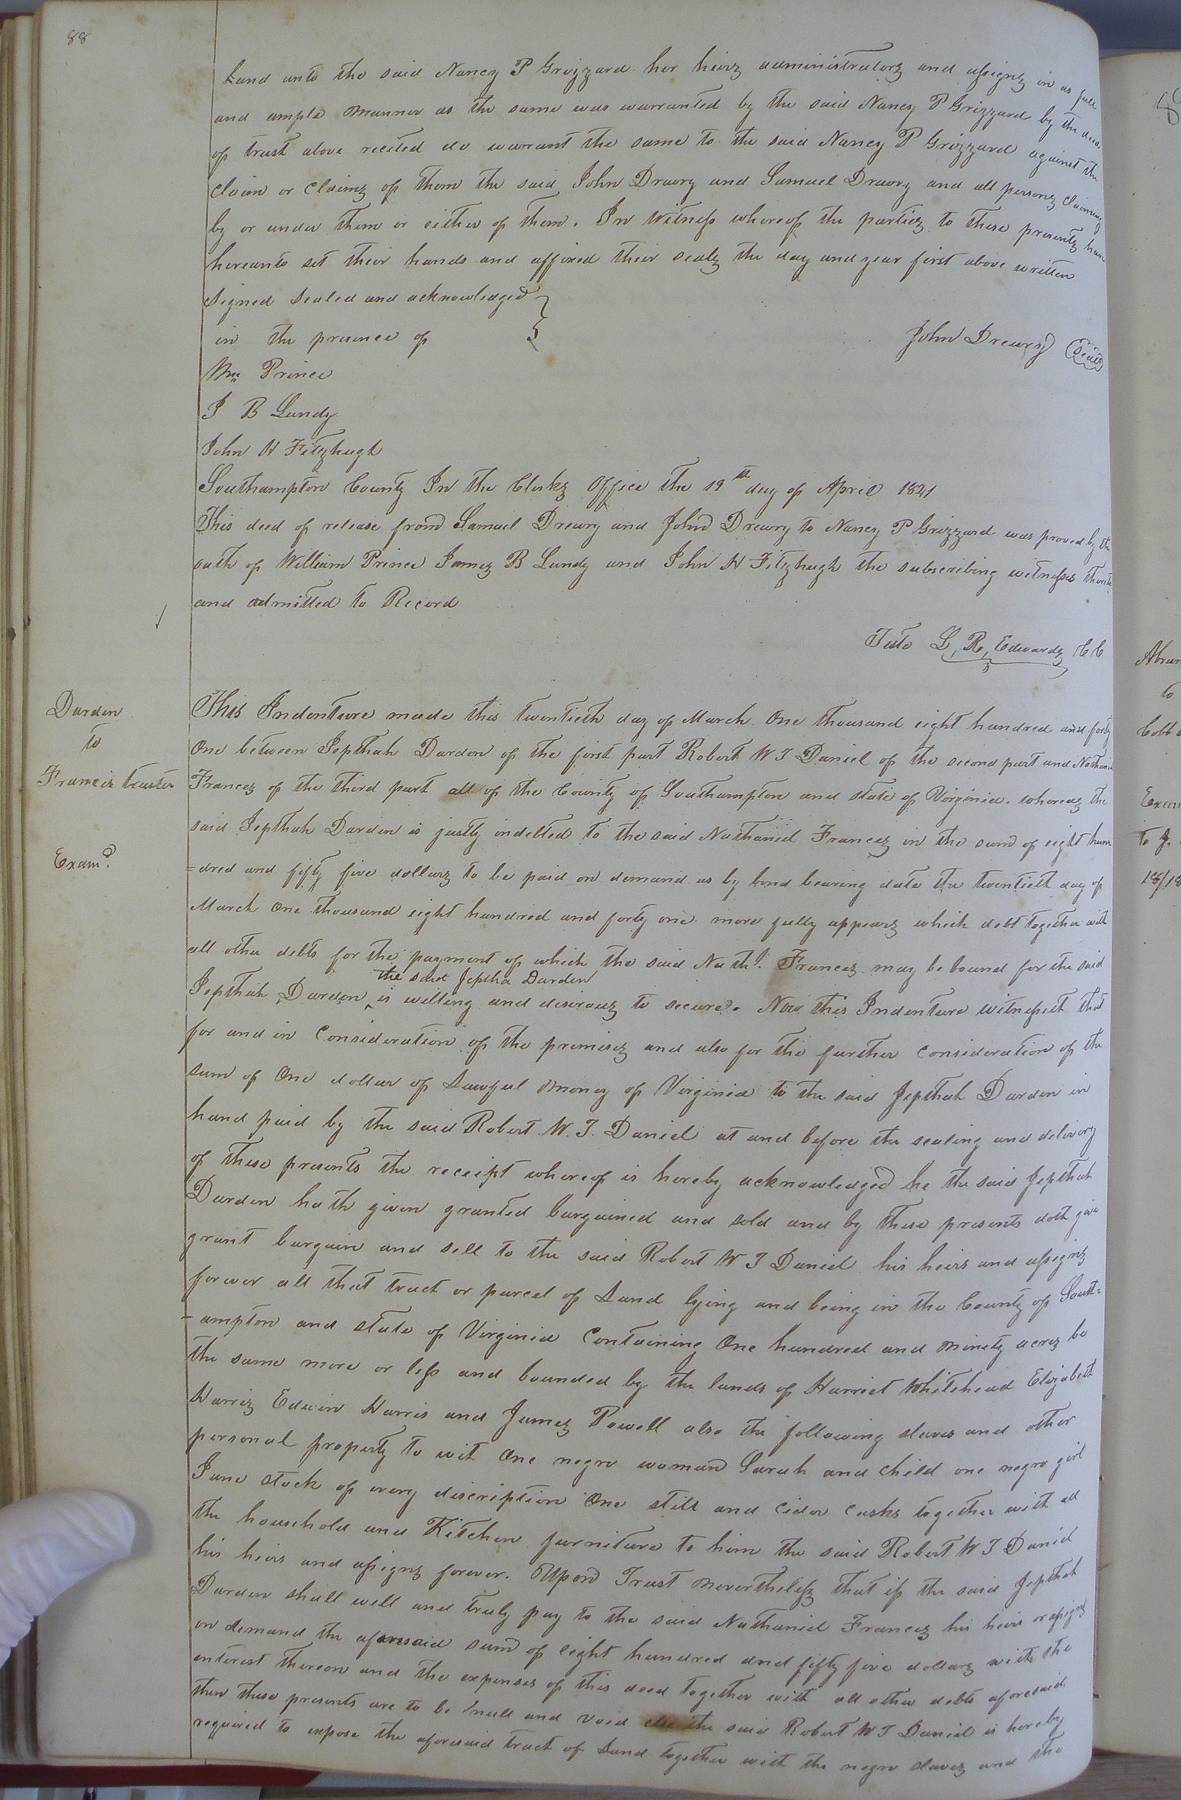 88
Land unto the said Nancy P Grizzard her heirs administrators and assigns in as full
and ample manner as the same was warranted by the said Nancy P Grizzard by the deed
of trust above recited do warrant the same to the said Nancy P Grizzard against the
claim or claims of them the said John Drewry and Samuel Drewry and all persons claiming
by or under them or either of them. In Witness whereof the parties to these presents have
hereunto set their hands and affixed their seals the day and year first above written
Signed Sealed and acknowledged
in the presence of
John Drewry Seal
Wm Prince
J B Lundy
John H Fitzhugh
Southampton County In the Clerks Office the 19th day of April 1841
This deed of release from Samuel Drewry and John Drewry to Nancy P Grizzard was proved by the
oath of William Prince James B Lundy and John H Fitzhugh the subscribing witnesses thereto
and admitted to Record
Teste L, R, Edwards CC
Darden
to
Francis trustee
Examd
This Indenture made this twentieth day of March One thousand eight hundred and forty
One between Jepthah Darden of the first part Robert W T Daniel of the second part and Nathaniel
Frances of the third part all of the County of Southampton and state of Virginia. whereas the
said Jepthah Darden is justly indebted to the said Nathaniel Frances in the sum of eight hun
=dred and fifty five dollars to be paid on demand as by bond bearing date the twentieth day of
March One thousand eight hundred and forty one more fully appears which debt together with
all other debts for the payment of which the said Nathl. Frances may be bound for the said
the said Jeptha Darden
Jepthah Darden ^ is willing and desirous to secure. Now this Indenture witnesseth that
for and in Consideration of the premises and also for the further Consideration of the
sum of One dollar of Lawful money of Virginia to the said Jepthah Darden in
hand paid by the said Robert W. T. Daniel at and before the sealing and delivery
of these presents the receipt whereof is hereby acknowledged he the said Jepthah
Darden hath given granted bargained and sold and by these presents doth give
grant bargain and sell to the said Robert W T Daniel his heirs and assigns
forever all that tract or parcel of Land lying and being in the County of South=
-ampton and state of Virginia Containing One hundred and ninety acres be
the same more or less and bounded by the lands of Harriet Whitehead Elizabeth
Harris Edwin Harris and James Powell also the following slaves and other
personal property to wit One negro woman Sarah and child one negro girl
Jane stock of every discription One still and Cider casks together with all
the household and Kitchen furniture to him the said Robert W T Daniel
his heirs and assigns forever. Upon Trust nevertheless that if the said Jepthah
Darden shall well and truly pay to the said Nathaniel Frances his heirs or assigns
on demand the aforesaid sum of eight hundred and fifty five dollars with the
interest thereon and the expenses of this deed together with all other debts aforesaid
then these presents are to be null and void else the said Robert W T Daniel is hereby
required to expose the aforesaid tract of Land together with the negro slaves and the
to